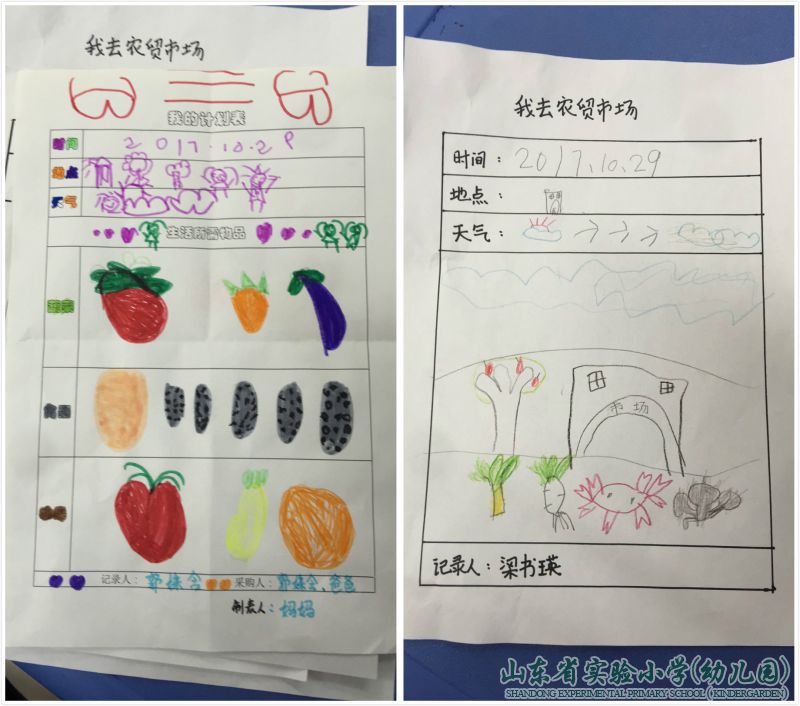 我去农贸市场
我的计划表
时间 2017.10.29
地点
天气
生活所需物品
蔬菜
记录人: 采购人:
制表人:妈妈
我去农贸市场
时间: 2017.10.29
地点:
天气:
市场
记录人:梁书瑛
山东省实验小学(幼儿园)
SHANDONG EXPERIMENTAL PRIMARY SCHOOL (KINDERGARDEN)